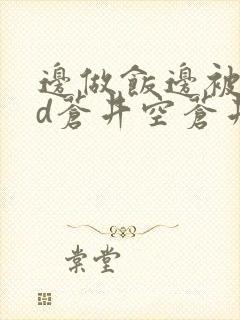 邊做飯邊被
d蒼井空蒼井
棠堂